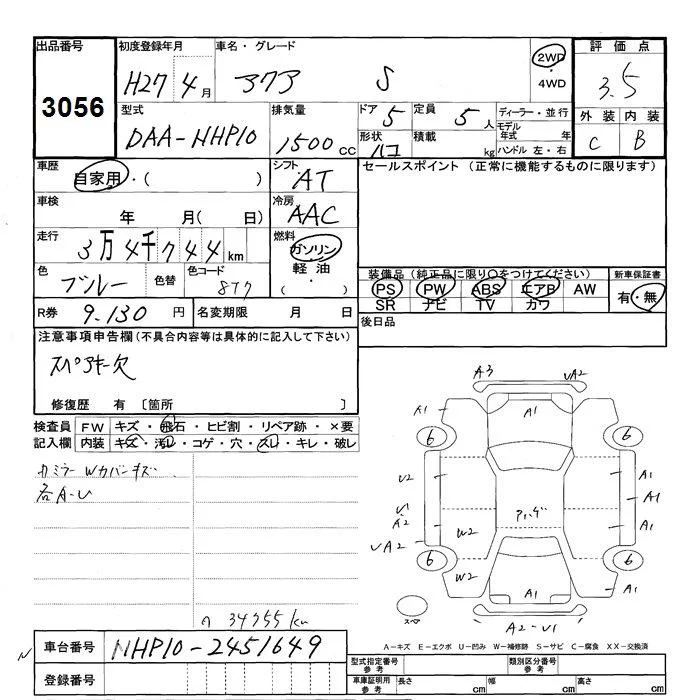 出品番号 初度登録年月 車名・グレード 2WD 評価点
3056 H27 4月 アクア S 4WD 3.5
型式 排気量 ドア 5 定員 5人 ディーラー・並行 外装 内装
DAA-NHP10 1500cc 形状 ハコ 積載 kg モデル年式 年 C B
ハンドル 左・右
車歴 シフト セールスポイント (正常に機能するものに限ります)
自家用・( ) AT
車検 冷房
年 月( 日) AAC
走行 燃料
3万4千744km ガソリン
色 色替 色コード 軽油
ブルー 877 ( ・ )
装備品(純正品に限り○をつけてください) 新車保証書
PS PW ABS エアB AW 有・無
SR ナビ TV カワ
R券 9.130円 名変期限 月 日 後日品
注意事項申告欄(不具合内容等は具体的に記入して下さい)
スペアキー欠
修復歴 有 [箇所 ]
検査員 FW キズ・飛石・ヒビ割・リペア跡・×要
記入欄 内装 キズ・汚レ・コゲ・穴・スレ・キレ・破レ
カミラー Wカバーキズ
各A-U
34755km
A3 UA2
A1 A1
6 6
U2 A1
U1 A1
A2 アハゲ A1
UA2 W2
6 6
W2 A1 A1
スペア A2-U1
A-キズ E-エクボ U-凹み W-補修跡 S-サビ C-腐食 XX-交換済
車台番号 NHP10-2451649
登録番号
型式指定番号 類別区分番号
参考 参考
車庫証明用 長さ cm 幅 cm 高さ cm
参考